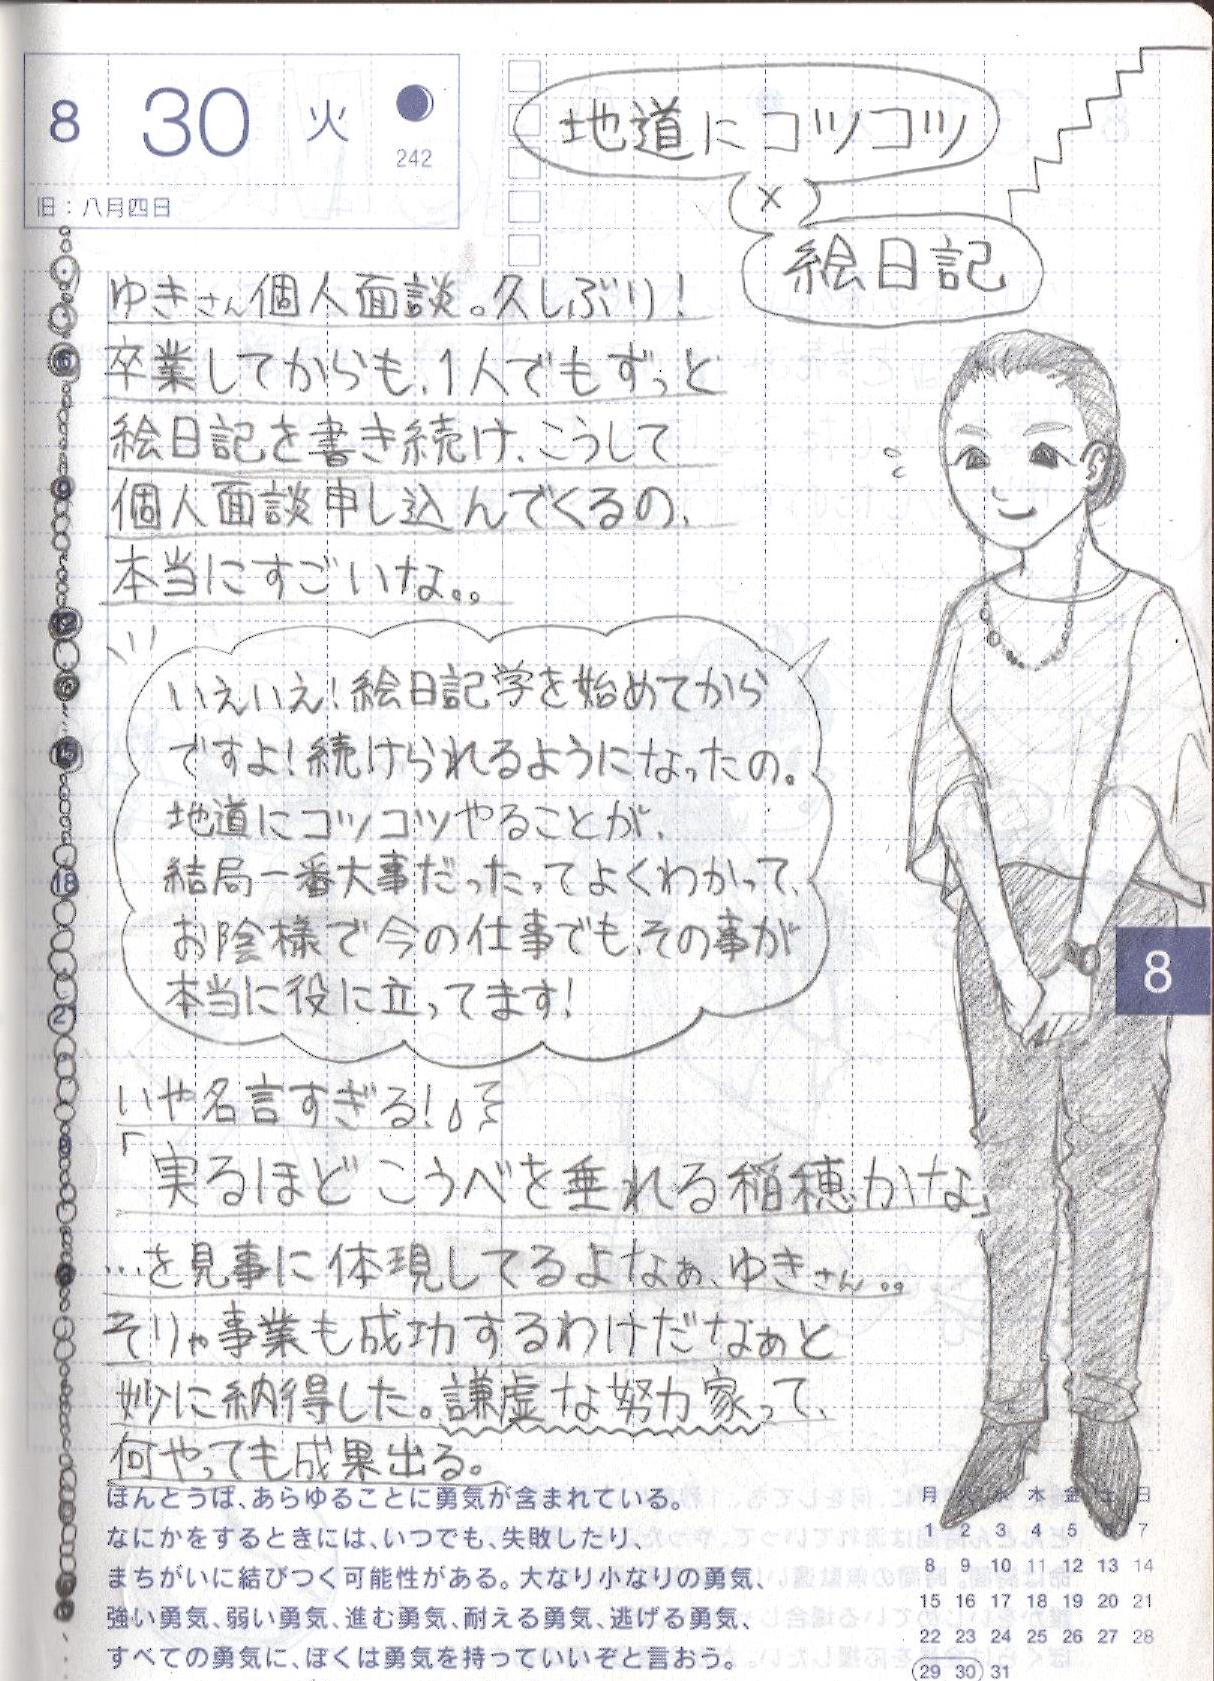 8 30 火
242
旧：八月四日
地道にコツコツ
×
絵日記
ゆきさん個人面談。久しぶり！
卒業してからも、1人でもずっと
絵日記を書き続け、こうして
個人面談申し込んでくるの、
本当にすごいな。。
いえいえ！絵日記学を始めてから
ですよ！続けられるようになったの。
地道にコツコツやることが、
結局一番大事だったってよくわかって、
お陰様で今の仕事でも、その事が
本当に役に立ってます！
いや名言すぎる！
「実るほどこうべを垂れる稲穂かな」
…を見事に体現してるよなぁ、ゆきさん。。
そりゃ事業も成功するわけだなぁと
妙に納得した。謙虚な努力家って、
何やっても成果出る。
8
12
15
18
21
ほんとうは、あらゆることに勇気が含まれている。
なにかをするときには、いつでも、失敗したり、
まちがいに結びつく可能性がある。大なり小なりの勇気、
強い勇気、弱い勇気、進む勇気、耐える勇気、逃げる勇気、
すべての勇気に、ぼくは勇気を持っていいぞと言おう。
月 火 水 木 金 土 日
1 2 3 4 5 6 7
8 9 10 11 12 13 14
15 16 17 18 19 20 21
22 23 24 25 26 27 28
29 30 31